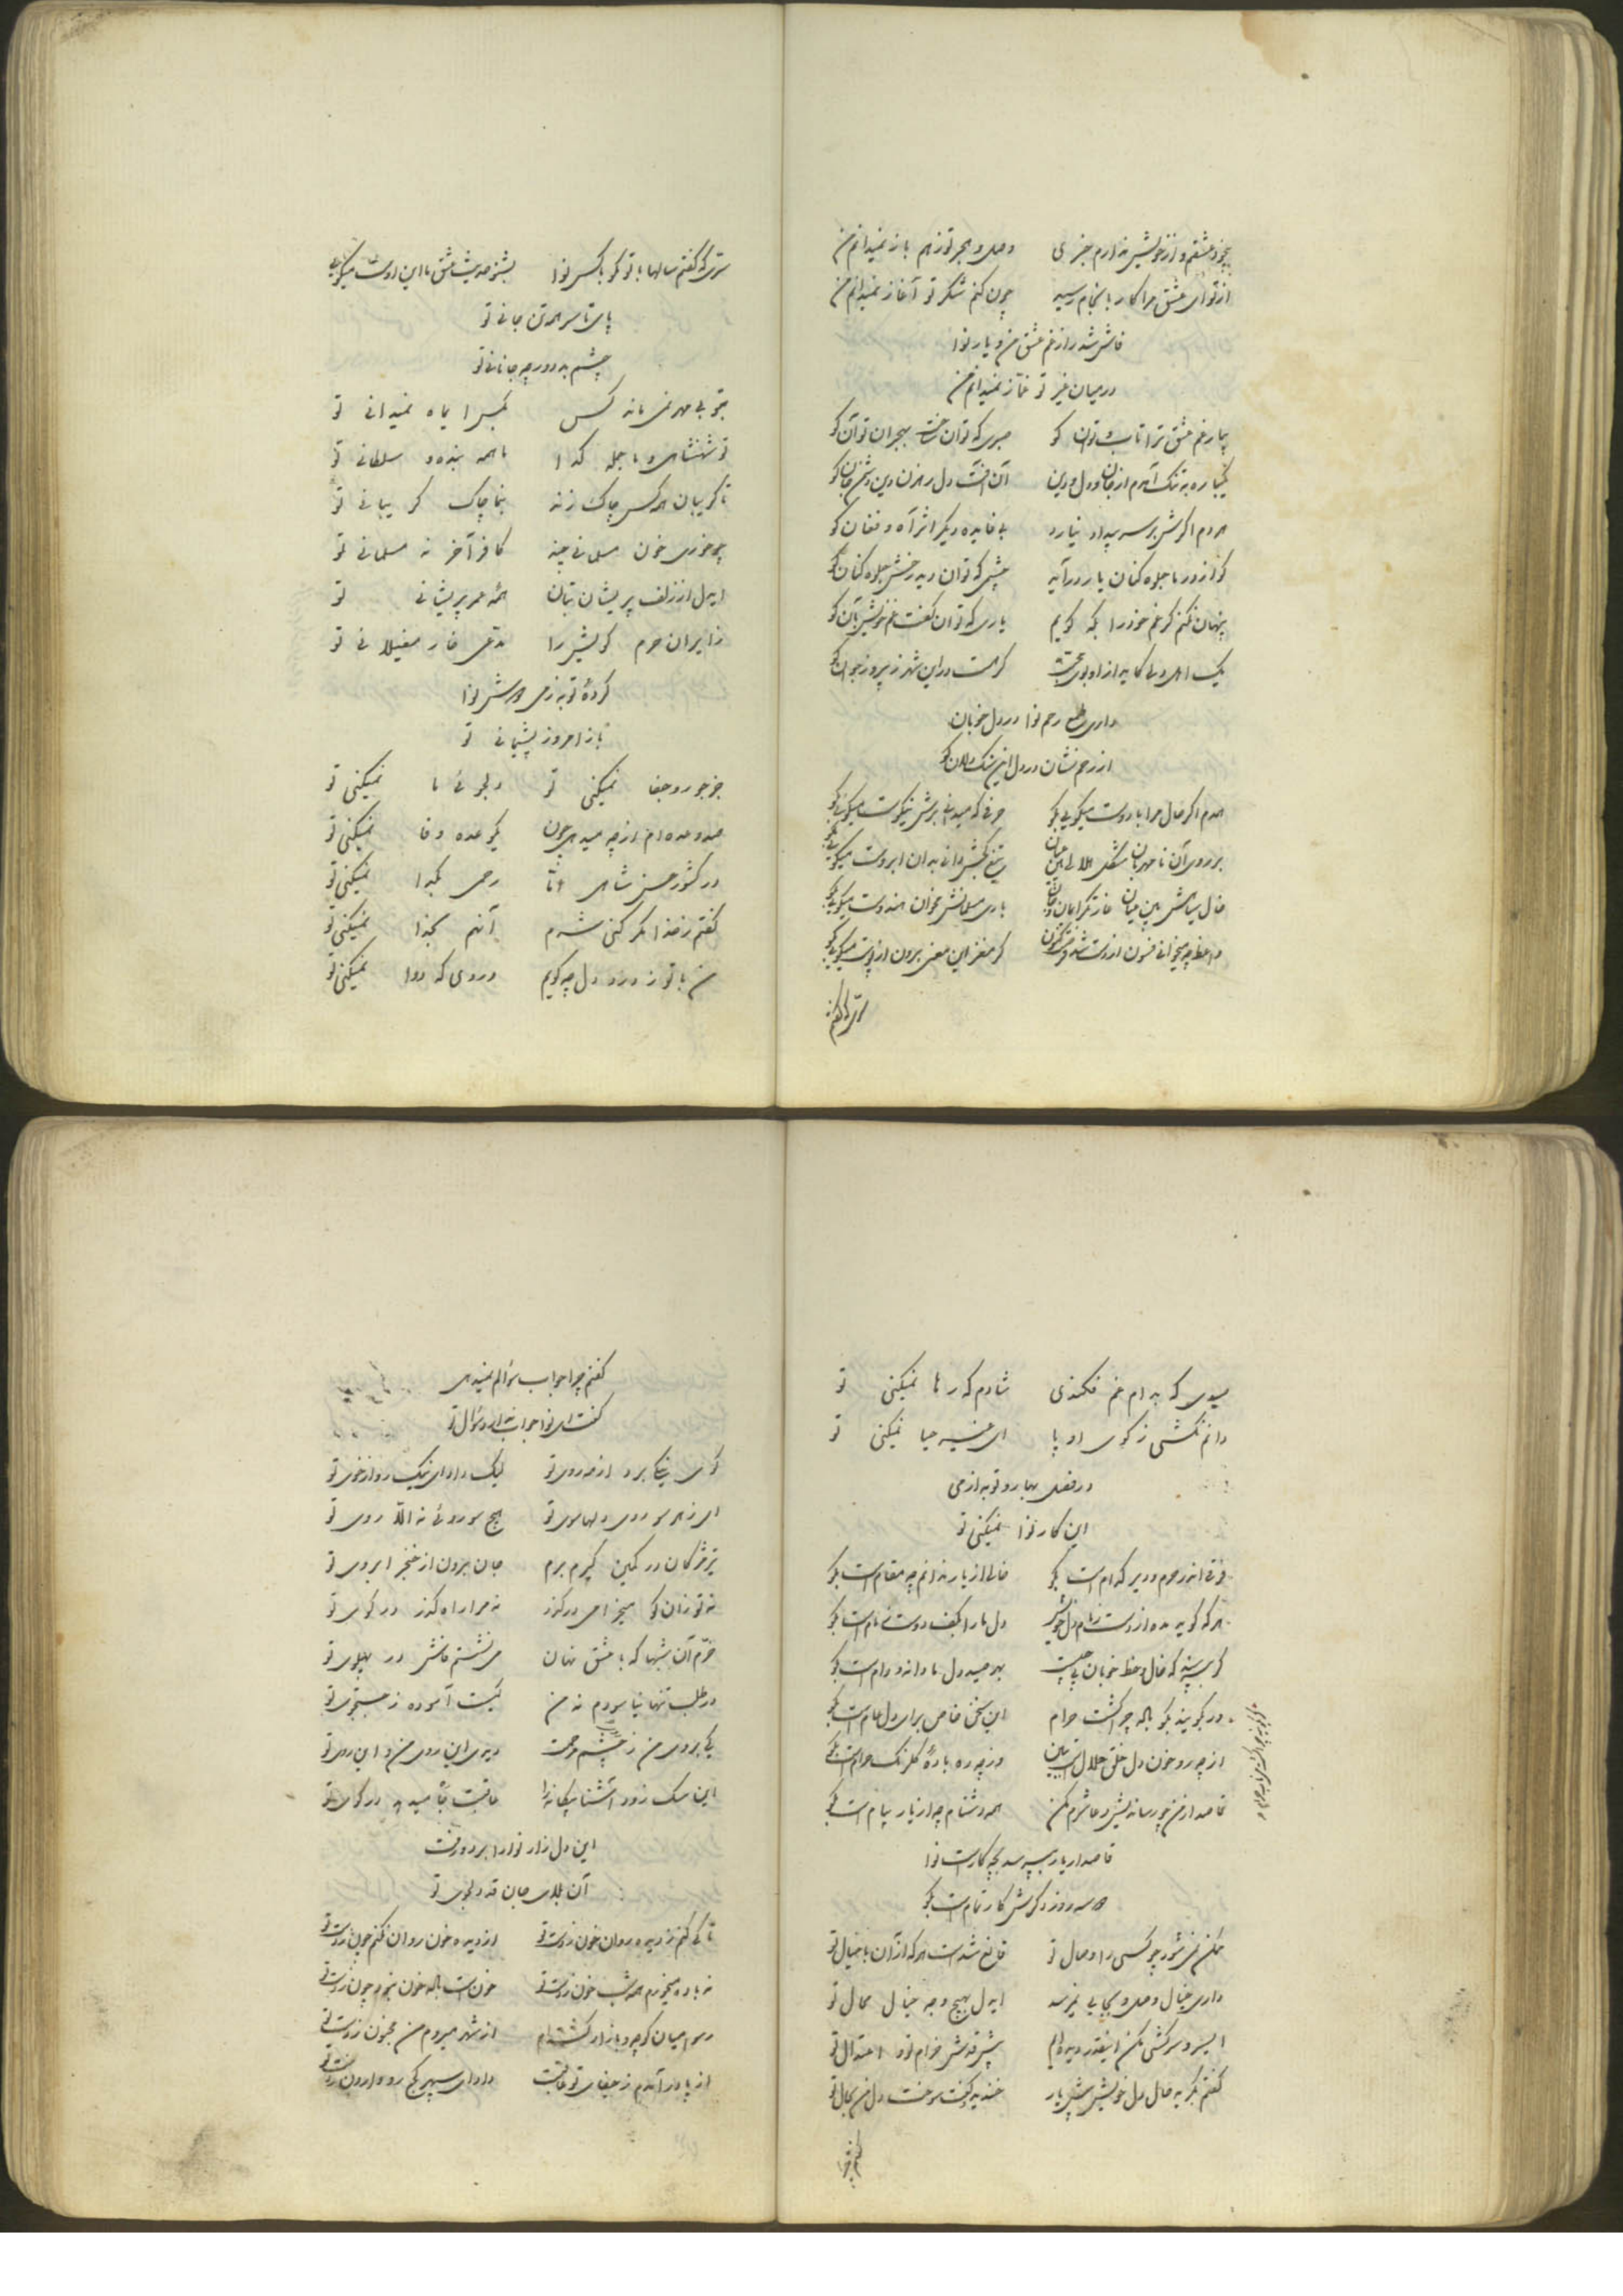 بیخود عشقم و از خویش ندارم خبری وصل و هجر تو ز هم باز نمیدانم من
از تو ای عشق مرا کار بانجام رسید چون کنم شکر تو آغاز نمیدانم من
فاش شد راز غم عشق من و یار نوا
در میان غیر تو غماز نمیدانم من
بیمار غم عشق ترا تاب و توان کو صبری که توان ساخت بهجران تو آن کو
یکباره به تنگ آمدم از جان و دل و دین آن آفت دل رهزن دین دشمن جان کو
هر دم اگرش بر سر بیداد نیارد بی فایده دیگر اثر آه و فغان کو
کو از در ما جلوه کنان یار درآید چشمی که توان دید رخش جلوه کنان کو
پنهان نکنم گر غم خود را بکه گویم یاری که توان گفت غم خویش بآن کو
یک اهل دلی کاید از او بوی محبت گر هست در این شهر ز پیر و ز جوان کو
داری طمع رحم نوا در دل خوبان
از رحم نشان در دل این سنگدلان کو
همدم اگر حال مرا با دوست میگویی بگو حرفی که میدانی برش نیکوست میگویی بگو
بر روی آن نامهربان شکل هلالی بین عیان تیغ کجش دانی بدان ابروست میگویی بگو
خال سیاهش بین میان غارتگر ایمان و جان باری مسلمانش مخوان هندوست میگویی بگو
واعظ چه میخوانی فسون از دست شد گر مغز این معنی برون از پوست میگویی بگو
سری که گفتم
سری که گفتم سالها با تو مگو با کس نوا بشنو حدیث عشق ما این اوست میگوید
پای تا سر همه تن جانی تو
چشم بد دور چه جانانی تو
بتو بی مهر نمی ماند کس بکس ای ماه نمیدانی تو
تو شهنشاهی و ما جمله گدا ما همه بنده و سلطانی تو
تا گریبان همه کس چاک زند بنما چاک گریبانی تو
چو خوری خون مسلمانی چند کافر آخر نه مسلمانی تو
ایدل از زلف پریشان بتان همه عمر پریشانی تو
زایران حرم کویش را مدعی خار مغیلانی تو
کرده توبه ز می دوش نوا
باز امروز پشیمانی تو
جز جور و جفا نمیکنی تو دلجوئی ما نمیکنی تو
صد وعده ام از چه میدهی چون یکوعده وفا نمیکنی تو
در کشور حسن شاهی اما رحمی بگدا نمیکنی تو
گفتم ز خدا مگر کنی شرم آنهم بخدا نمیکنی تو
من با تو ز درد دل چه گویم دردی که دوا نمیکنی تو
صیدی که بدام غم فکندی شادم که رها نمیکنی تو
دانم نکشی ز کوی او پا ای غیر حیا نمیکنی تو
در فصل بهار و توبه از می
این کار نوا نمیکنی تو
فرقی اندر حرم و دیر کدام است بگو خالی از یار ندانم چه مقام است بگو
هر که گوید مده از دست زمام دل خویش دل ما را بکف دوست زمام است بگو
گر بپرسند که خال و خط خوبان پی چیست بهر صید دل ما دانه و دام است بگو
ور بگویند بگو باده چرا گشت حرام این سخن خاص برای دل عام است بگو
از چه رو خون دل خلق حلال است ببین وز چه ره باده گلرنگ حرام است بگو
قاصد از من چو رسانند بیش دعا شرم مکن همه دشنام چه از یار پیام است بگو
قاصد ار یار بپرسد بچه کار است نوا
دو سه روز دگرش کار تمام است بگو
ممکن نمیشود چو کسی را وصال تو قانع شده است هر که از آن با خیال تو
داری خیال وصل و بجایی نمیرسد ایدل بهیچ وجه خیال محال تو
ای سرو سرکشی مکن اینقدر دیده ایم پیش قدش خرام تو و اعتدال تو
گفتم بگریه حال دل خویش پیش یار خندید و گفت سوخت دل من بحال تو
گفتم چرا
گفتم چرا جواب سؤالم نمیدهی
گفت ای نوا جواب ندارد سؤال تو
گوی نیکی برد از مه روی تو لیک داد ای نیک رو از خوی تو
ای ز هر سو روی دلها سوی تو هیچ سو روئی نه الا روی تو
تیر مژگان در کمین گیرم برم جان برون از خنجر ابروی تو
نه تو زان کو میخرامی در گذر نه مرا راه گذر در کوی تو
خرم آن شبها که با عشق نهان می نشستم فاش در پهلوی تو
در طلب تنها نیاسودم نه من کیست آسوده ز جستجوی تو
یک بروی من ز چشم مرحمت دیدی این روی من و این روی تو
این سگ زود آشنا بیگانه را عاقبت پا میدهد در کوی تو
این دل زار نوا را برد و رفت
آن بلای جان قد دلجوی تو
تا کی کنم ز دیده روان خون ز دست تو از دیده خون روان نکنم چون ز دست تو
نه باده میخورم همه شب خون ز دست تو خون است باده خون نخورم چون ز دست تو
رسوا میان کوچه و بازار گشته ام از شهر میروم من مجنون ز دست تو
از پا در آمدم ز جفای تو عاقبت داد ای سپهر کج رو وارون ز دست تو